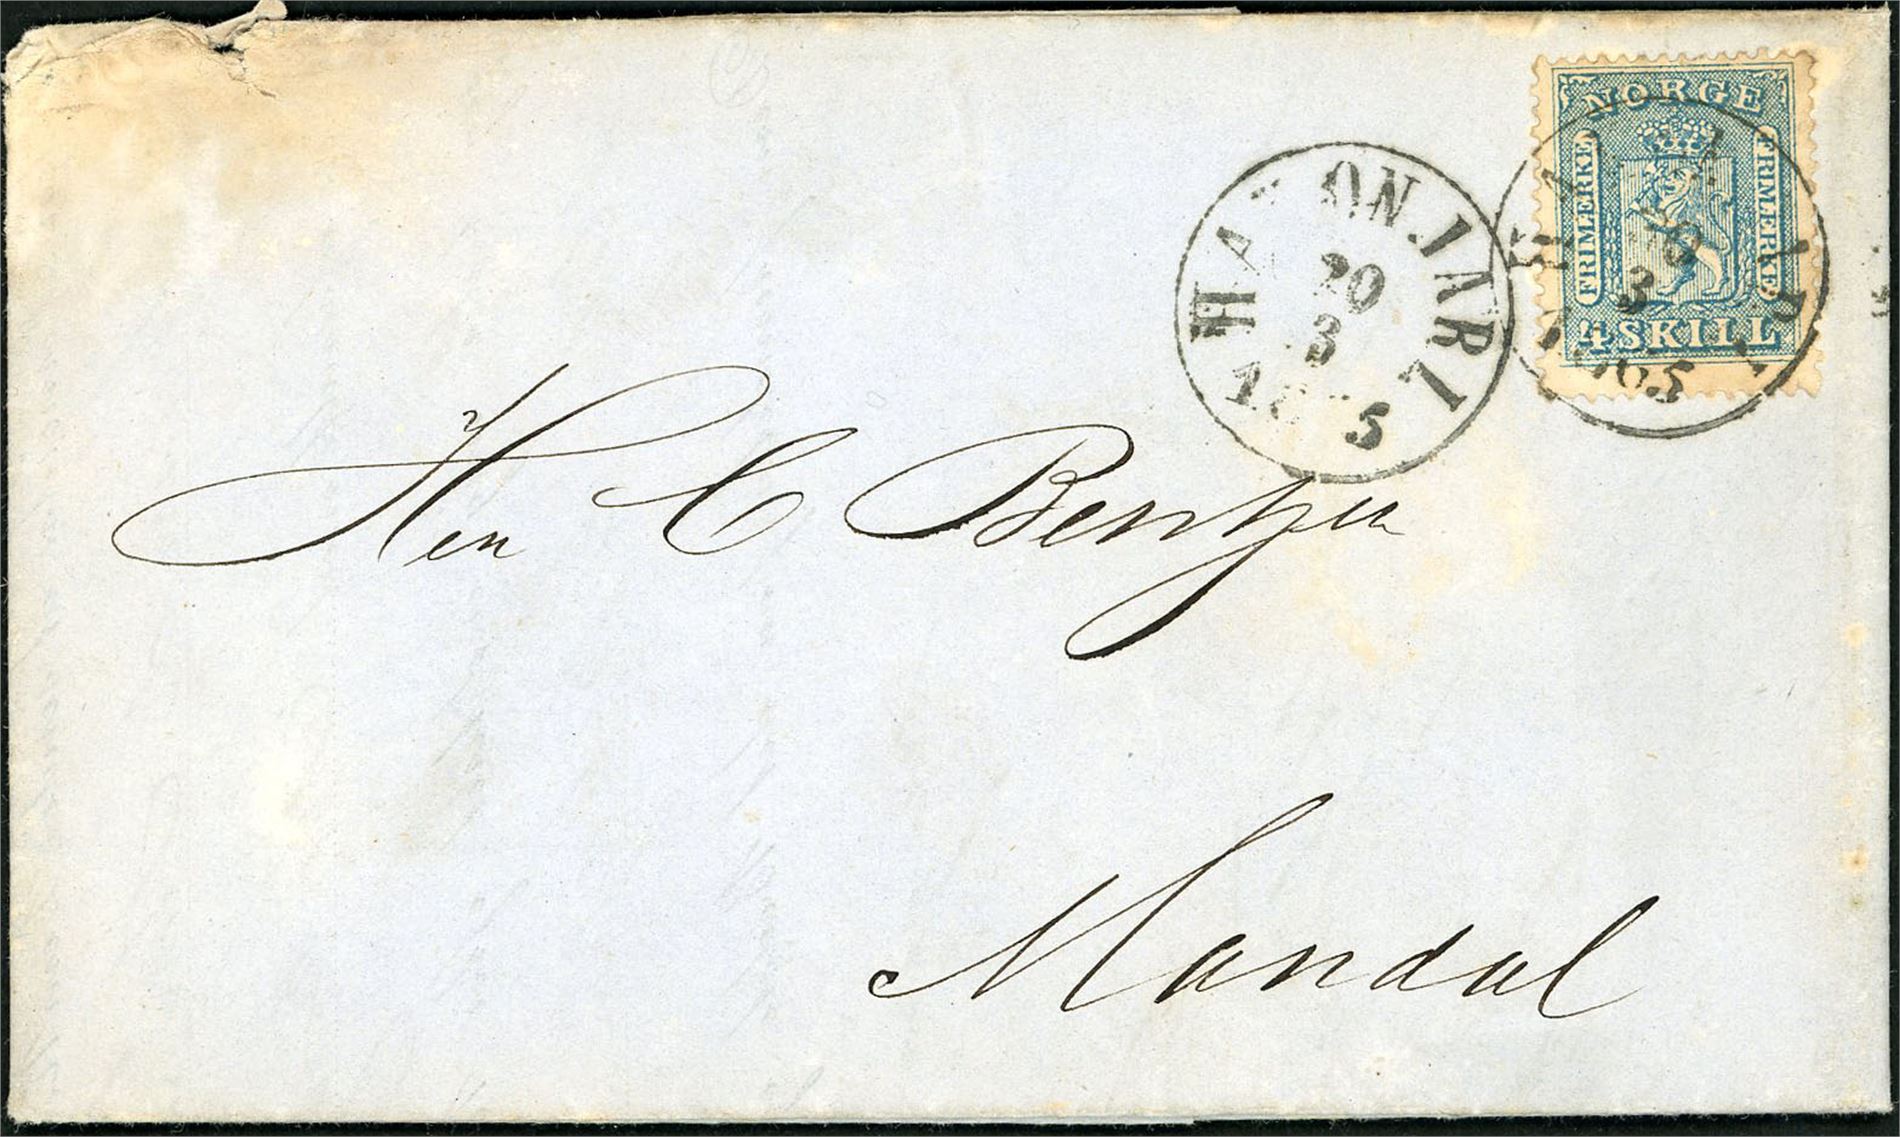 NORGE
FRIMERKE FRIMERKE
4 SKILL
HAKON JARL
20
3
1865
20
3
1865
Herr C Bentzen
Mandal